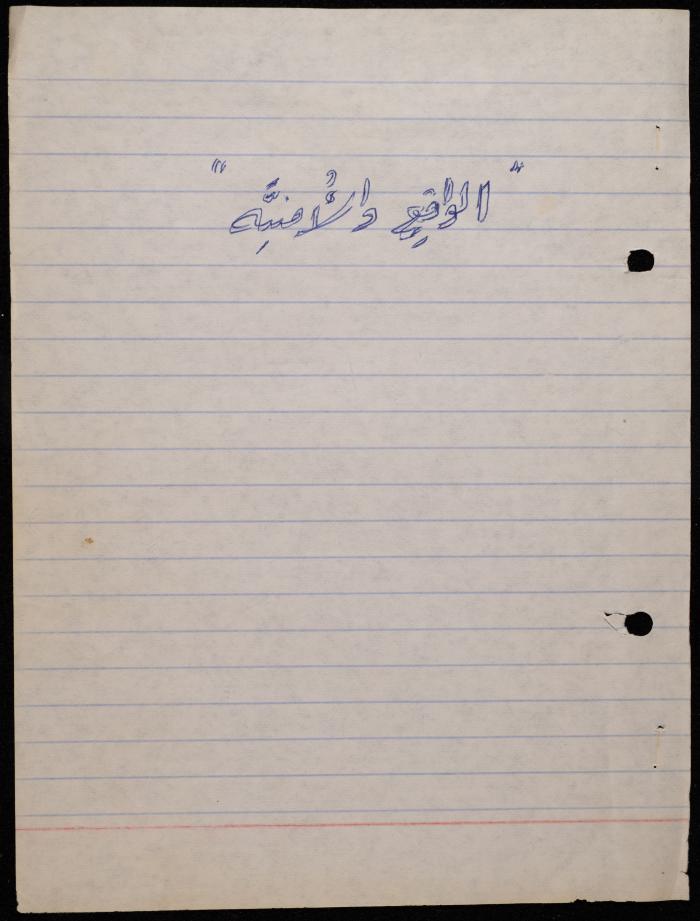 "الواقع والأمنيَّة"